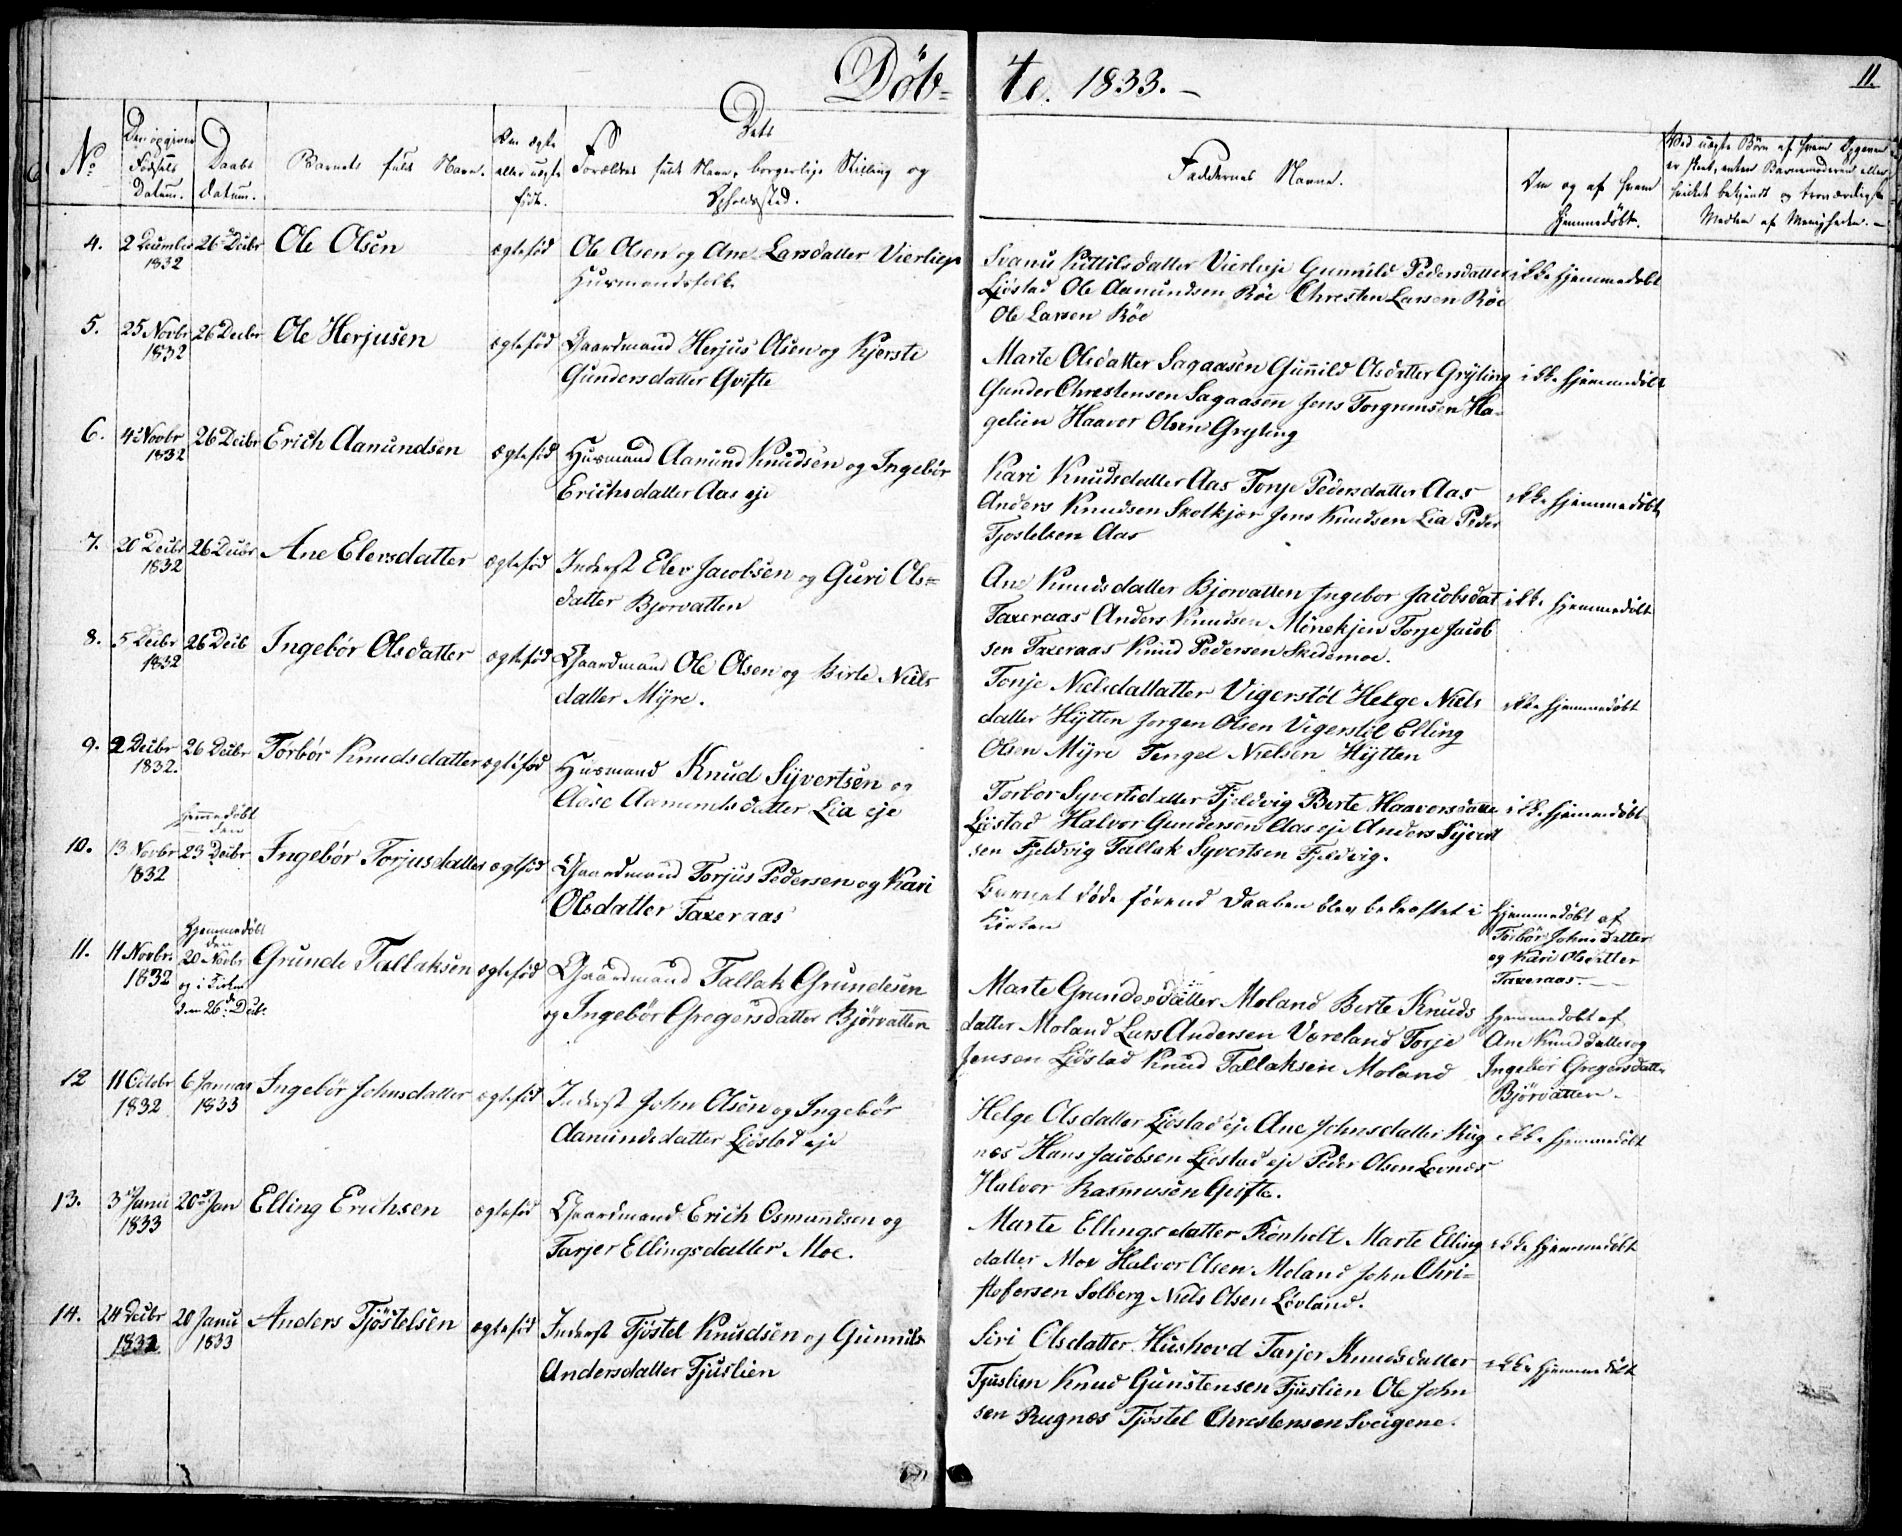 Döb-
te. 1833. –
11.
No
Den opgivne Fødsels Datum.
Daabs datum.
Barnets fulde Navn.
Om ægte eller uægte født.
Dets
Forældres fulde Navn, borgerlige Stilling og
Opholdssted.
Faddernes Navne.
Om og af hvem
Hjemmedöbt.
Ved uægte Börn af hvem Opgaven
er skeet, enten Barnemoderen eller
hvilket bekjendt og troværdigt
Medlem af Menigheden. –
4.
2 December
1832
26 Decbr
Ole Olsen
ægtefød
Ole Olsen og Ane Larsdatter Vierlieje
Husmandsfolk
Svanu Kittilsdatter Vierlieje Gunnild Pedersdatter
Ljöstad Ole Aamundsen Röe Chresten Larsen Röe
Ole Larsen Röe
ikke hjemmedøbt
5.
25 Novbr
1832
26 Decbr
Ole Herjusen
ægtefød
Gaardmand Herjus Olsen og Kjerste
Gundersdatter Gvifte
Marte Olsdatter Sagaasen Gunnild Olsdatter Gryting
Gunder Chrestensen Sagaasen Jens Torgrimsen Ha-
gelien Haavor Olsen Gryting
ikke hjemmedøbt
6.
4 Novbr
1832
26 Decbr
Erich Aamundsen
ægtefød
Husmand Aamund Knudsen og Ingebör
Erichsdatter Aas eje
Kari Knudsdatter Aas Tonje Pedersdatter Aas
Anders Knudsen Skolkjær Jens Knudsen Lia Peder
Tjostelsen Aas
ikke hjemmedöbt
7.
20 Decbr
1832
26 Decbr
Ane Elevsdatter
ægtefød
Inderst Elev Jacobsen og Guri Ols-
datter Bjorvatten
Ane Knudsdatter Bjorvatten Ingebor Jacobsdat
Taxeraas Anders Knudsen Mönekjen Torje Jacob
sen Taxeraas Knud Pedersen Skedemoe.
ikke hjemmedöbt
8.
5 Decbr
1832
26 Decb
Ingebör Olsdatter
ægtefød
Gaardmand Ole Olsen og Birte Niels
datter Myre.
Tonje Nielsdattatter Vigerstöl Helge Niels
datter Hytten Jorgen Olsen Vigerstöl Elling
Olsen Myre Tengel Nielsen Hytten
ikke hjemmedöbt
9.
2 Decbr
1832.
26 Decbr
Torbör Knudsdatter
ægtefød
Husmand Knud Syvertsen og
Aase Aamundsdatter Lia eje
Torbor Syvertsdatter Fjeldvig Berte Haavorsdatte
Ljöstad Halvor Gundersen Aas eje Anders Syvert
sen Fjeldvig Tallak Syvertsen Fjeldvig.
ikke hjemmedöbt
10.
13 Novbr
1832
hjemmedöbt
den
23 Decbr
Ingebör Torjusdatter
ægtefød
Gaardmand Torjus Pedersen og Kari
Olsdatter Taxeraas
Barnet döde förend Daaben blev bekræftet i
Kirken
Hjemmedöbt af
Torbör Johnsdatter
og Kari Olsdatter
Taxeraas. –
11.
11 Novbr.
1832
Hjemmedöbt
den
20 Novbr
og i Kirken
den 26 de Decb.
Grunde Tallaksen
ægtefød
Gaardmand Tallak Grundesen
og Ingebör Gregersdatter Björvatten
Marte Grundesdatter Moland Birte Knuds
datter Moland Lars Andersen Væreland Torje
Jensen Ljöstad Knud Tallaksen Moland
Hjemmedobt af
Ane Knudsdatter og
Ingebör Gregersdatter
Björvatten.
12
11 Octobr
1832
6 Januar
1833
Ingebör Johnsdatter
ægtefød
Inderst John Olsen og Ingebör
Aamundsdatter Ljöstad eje
Helge Olsdatter Ljöstad eje Ane Johnsdatter Rug
næs Hans Jacobsen Ljöstad eje Peder Olsen Levnæs
Halvor Rasmusen Gvifte.
ikke hjemmedöbt
13.
3 Janu
1833
20 Jan
Elling Erichsen
ægtefød
Gaardmand Erich Osmundsen og
Tarjer Ellingsdatter Moe.
Marte Ellingsdatter Könholt Marte Elling
datter Moe Halvor Olsen Moland John Chri-
stofersen Solberg Niels Olsen Lövland.
ikke hjemmedöbt
14.
24 Decbr
1832
20 Janu
1833
Anders Tjöstelsen
ægtefød
Inderst Tjöstel Knudsen og Gunnild
Andersdatter Tjuslien
Siri Olsdatter Hushovd Tarjer Knudsdatter
Tjuslien Knud Gunstensen Tjuslien Ole John
sen Rugnæs Tjöstel Chrestensen Sveigene.
ikke hjemmedöbt